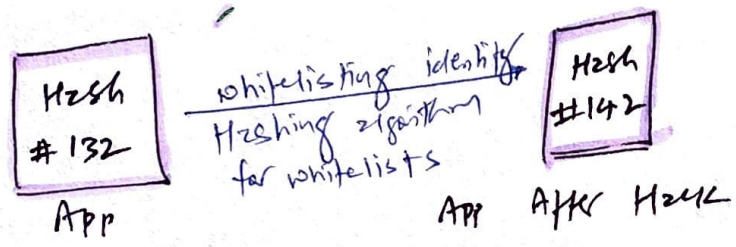 Hash
#132
App
whitelisting identity
Hashing algorithm
for whitelists
Hash
#142
App After Hack